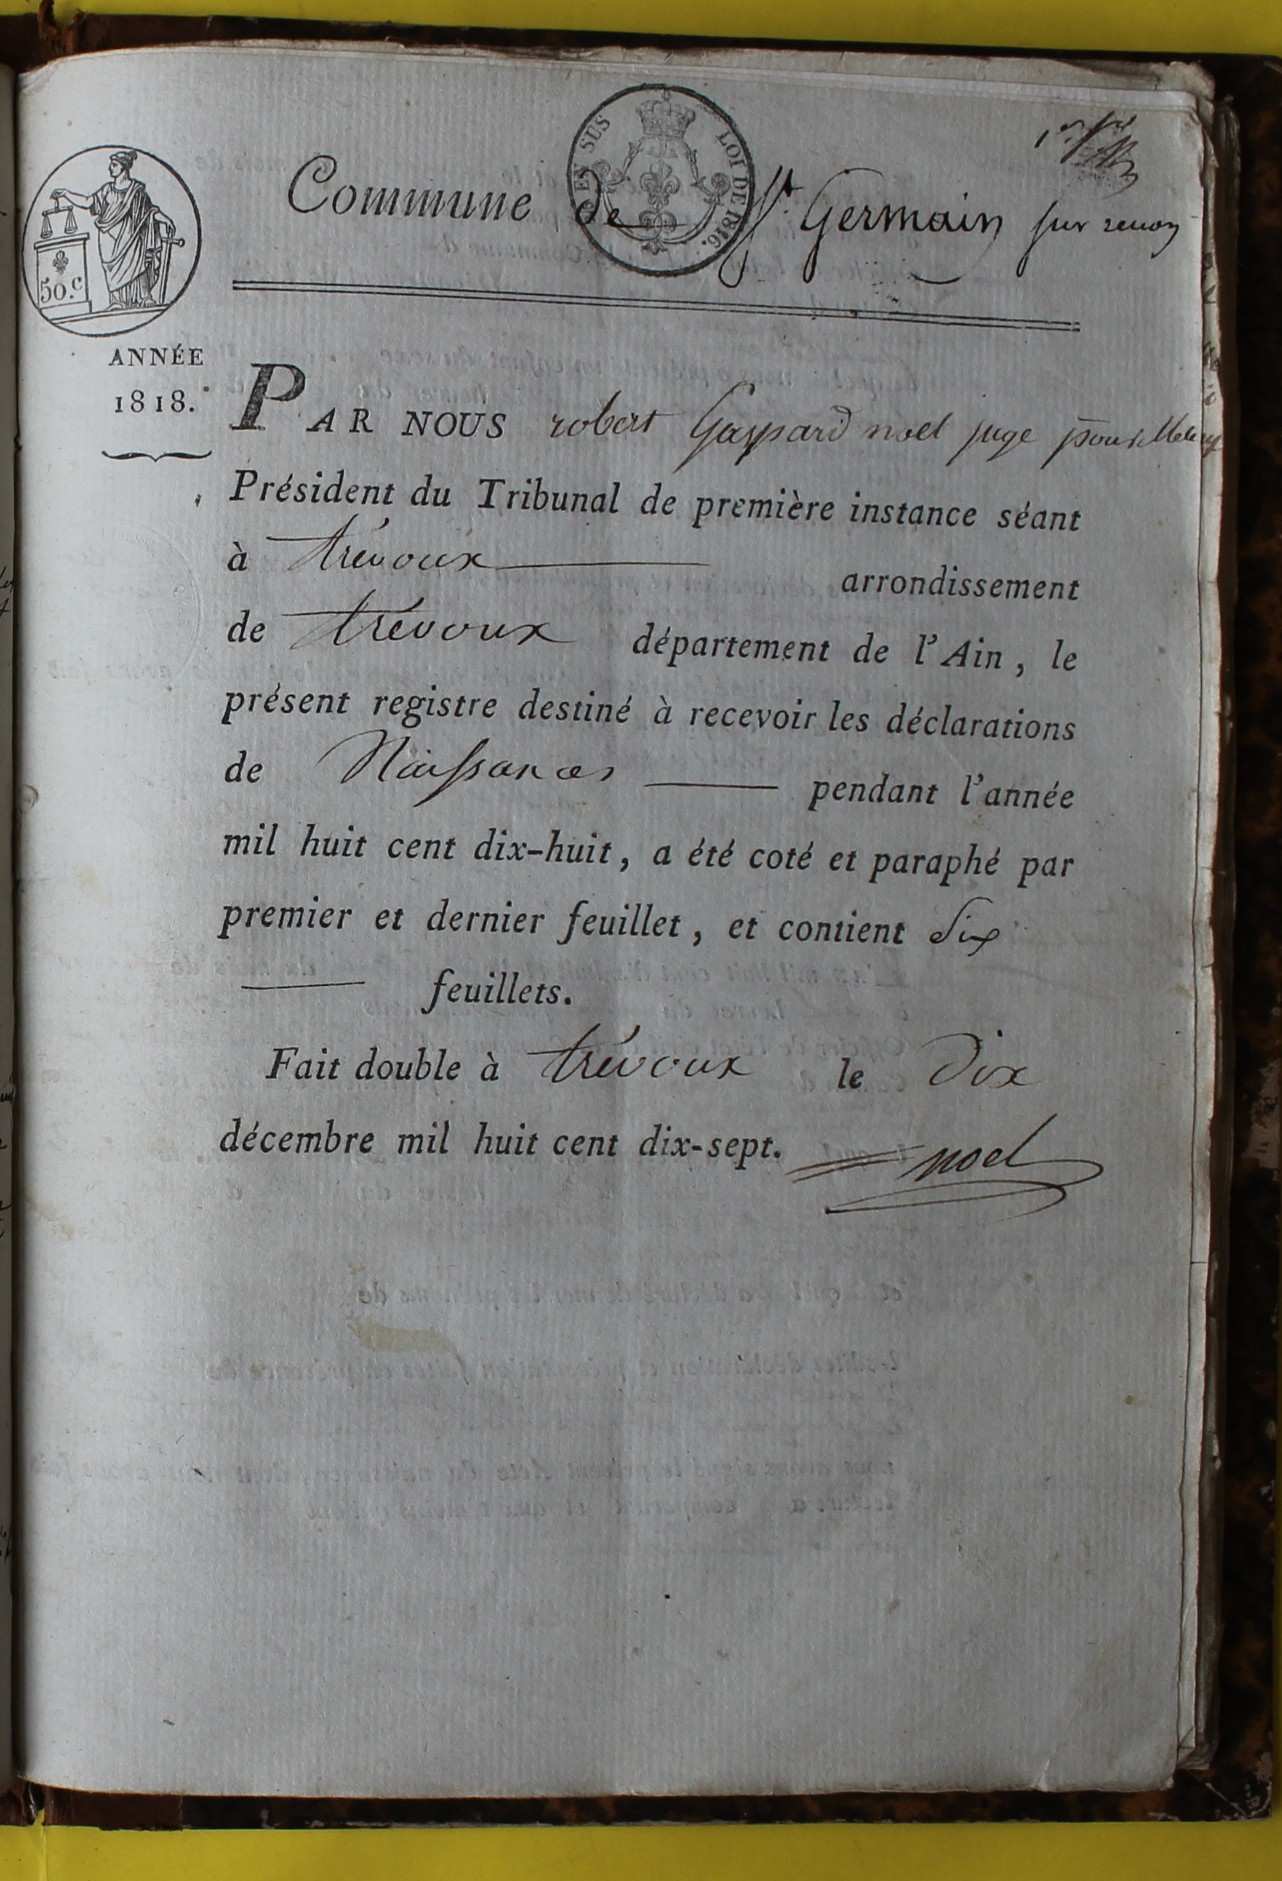 EN SUS LOI DE 1816.
Commune de St. Germain sur renon
50.c
ANNÉE
1818.
PAR NOUS robert Gaspard noel juge pour M. le
Président du Tribunal de première instance séant
à trévoux arrondissement
de trévoux département de l'Ain, le
présent registre destiné à recevoir les déclarations
de Naissances pendant l'année
mil huit cent dix-huit, a été coté et paraphé par
premier et dernier feuillet, et contient Six
feuillets.
Fait double à trévoux le Dix
décembre mil huit cent dix-sept. noel